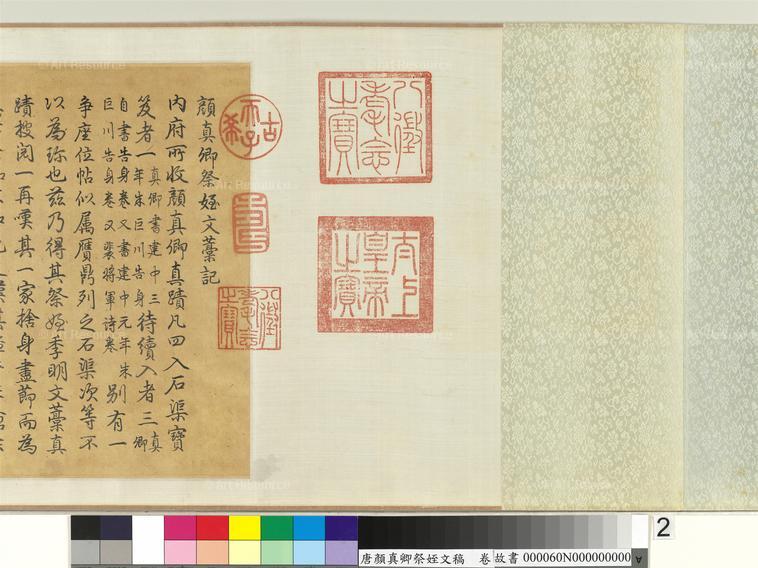 八徵耄念之寶
太上皇帝之寶
古希天子
壽
八徵耄念之寶
顏真卿祭姪文藁記
內府所收顏真卿真蹟凡四入石渠寶
笈者一真卿書建中三年朱巨川告身待續入者三真卿
自書告身卷又書建中元年朱巨川告身卷又裴將軍詩卷別有一
爭座位帖似屬贋鼎列之石渠次等不
以為珍也茲乃得其祭姪季明文藁真
蹟搜閱一再嘆其一家捨身盡節而為
2
唐顏真卿祭姪文稿 卷 故書 000060N000000000
© Art Resource